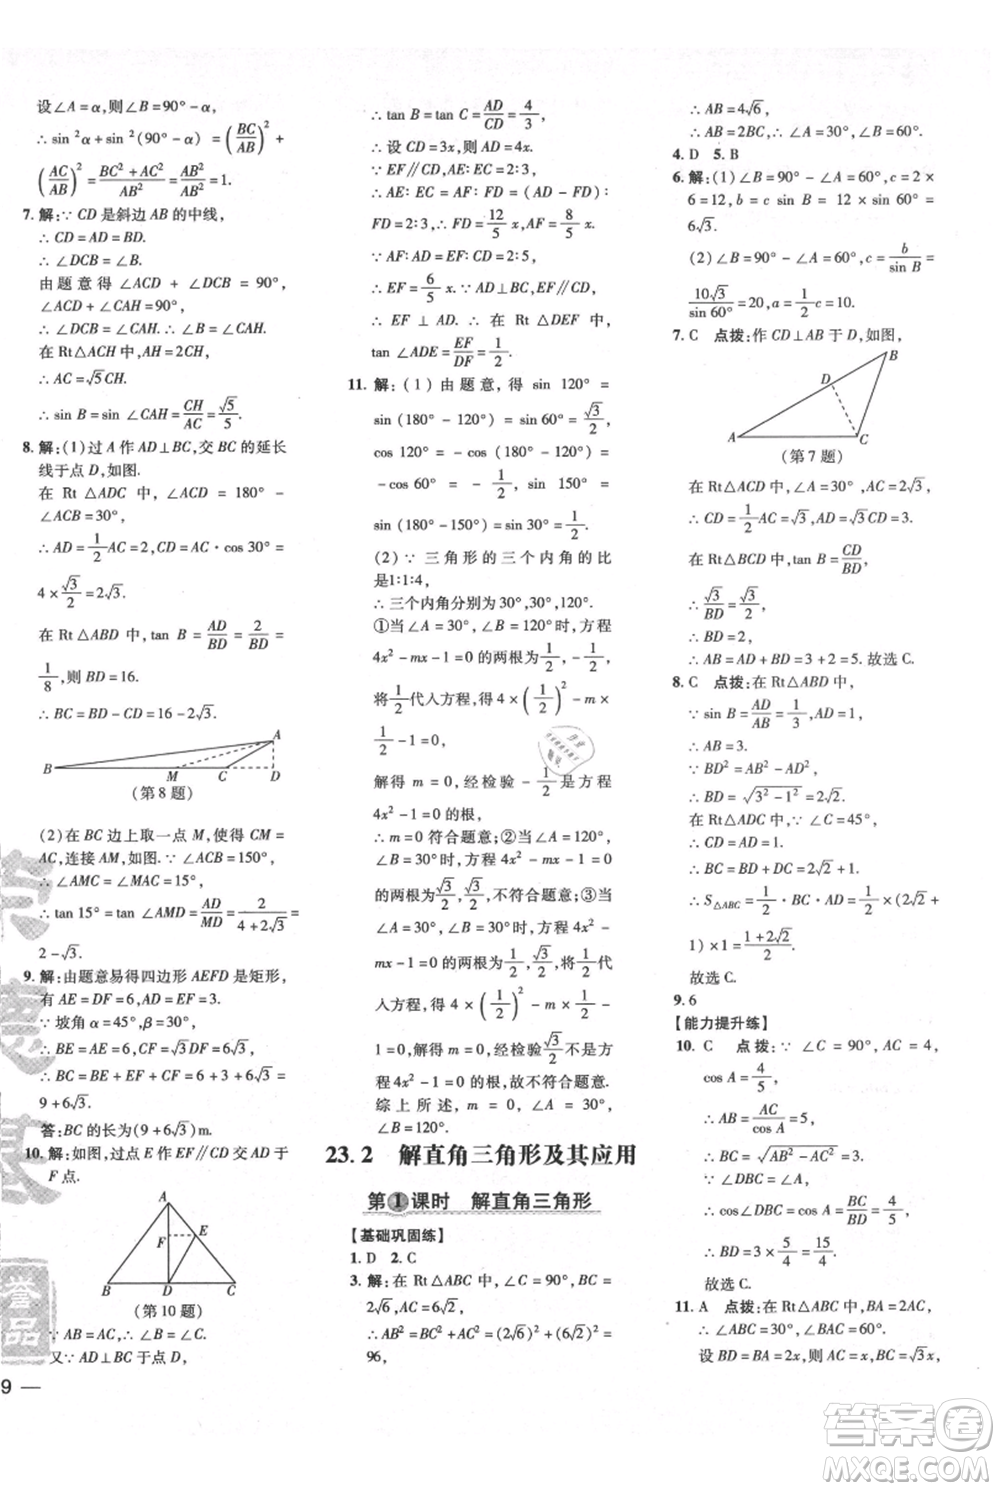 设∠A=α,则∠B=90°-α,
∴ sin²α+sin²(90°-α)=(BC/AB)²+
(AC/AB)²=(BC²+AC²)/AB²=AB²/AB²=1.
7. 解:∵ CD 是斜边 AB 的中线,
∴ CD=AD=BD.
∴ ∠DCB=∠B.
由题意得∠ACD+∠DCB=90°,
∠ACD+∠CAH=90°,
∴ ∠DCB=∠CAH. ∴ ∠B=∠CAH.
在 Rt△ACH 中,AH=2CH,
∴ AC=√5CH.
∴ sin B=sin ∠CAH=CH/AC=√5/5.
8. 解:(1)过 A 作 AD⊥BC,交 BC 的延长
线于点 D,如图.
在 Rt △ADC 中, ∠ACD = 180° -
∠ACB=30°,
∴ AD=1/2AC=2,CD=AC·cos 30°=
4×√3/2=2√3.
在 Rt△ABD 中,tan B=AD/BD=2/BD=
1/8,则 BD=16.
∴ BC=BD-CD=16-2√3.
A
B M C D
(第 8 题)
(2)在 BC 边上取一点 M,使得 CM=
AC,连接 AM,如图.∵ ∠ACB=150°,
∴ ∠AMC=∠MAC=15°.
∴ tan 15°=tan ∠AMD=AD/MD=2/(4+2√3)=
2-√3.
9. 解:由题意易得四边形 AEFD 是矩形,
有 AE=DF=6,AD=EF=3.
∵ 坡角 α=45°,β=30°,
∴ BE=AE=6,CF=√3DF=6√3.
∴ BC=BE+EF+CF=6+3+6√3=
9+6√3.
答:BC 的长为(9+6√3)m.
10. 解:如图,过点 E 作 EF∥CD 交 AD 于
F 点.
A
F E
B D C
(第 10 题)
∵ AB=AC,∴ ∠B=∠C.
又∵ AD⊥BC 于点 D,
9 —
∴ tan B=tan C=AD/CD=4/3.
∴ 设 CD=3x,则 AD=4x.
∵ EF∥CD,AE∶EC=2∶3,
∴ AE∶EC=AF∶FD=(AD-FD)∶
FD=2∶3,∴ FD=12/5x,AF=8/5x.
∵ AF∶AD=EF∶CD=2∶5,
∴ EF=6/5x.∵ AD⊥BC,EF∥CD,
∴ EF ⊥ AD. ∴ 在 Rt △DEF 中,
tan ∠ADE=EF/DF=1/2.
11. 解:(1)由题意,得 sin 120°=
sin(180°-120°)=sin 60°=√3/2,
cos 120°=-cos(180°-120°)=
-cos 60° = -1/2, sin 150° =
sin(180°-150°)=sin 30°=1/2.
(2)∵ 三角形的三个内角的比
是1∶1∶4,
∴ 三个内角分别为 30°,30°,120°.
①当∠A=30°,∠B=120°时,方程
4x²-mx-1=0 的两根为1/2,-1/2,
将1/2代入方程,得 4×(1/2)²-m×
1/2-1=0,
解得 m=0,经检验-1/2是方程
4x²-1=0 的根,
∴ m=0 符合题意;②当∠A=120°,
∠B=30°时,方程 4x²-mx-1=0
的两根为√3/2,√3/2,不符合题意;③当
∠A=30°,∠B=30°时,方程 4x²-
mx-1=0 的两根为1/2,√3/2,将1/2代
入方程,得 4×(1/2)²-m×1/2-1=0,
解得 m=0,经检验√3/2不是方程
4x²-1=0 的根,∴ 不符合题意.
综上所述,m=0,∠A=30°,∠B=
120°.
23.2 解直角三角形及其应用
第1课时 解直角三角形
【基础巩固练】
1. D 2. C
3. 解:在 Rt △ABC 中,∠C=90°,BC=
2√6,AC=6√2,
∴ AB²=BC²+AC²=(2√6)²+(6√2)²=
96,
∴ AB=4√6,
∴ AB=2BC,∴ ∠A=30°,∠B=60°.
4. D 5. B
6. 解:(1)∠B=90°-∠A=60°,c=2×
6=12,b=c sin B=12×sin 60°=
6√3.
(2)∠B=90°-∠A=60°,c=b/sin B=
10√3/sin 60°=20,a=1/2c=10.
7. C 点拨:作 CD⊥AB 于 D,如图,
B
D
A C
(第 7 题)
在 Rt△ACD 中,∠A=30°,AC=2√3,
∴ CD=1/2AC=√3,AD=√3CD=3.
在 Rt△BCD 中,tan B=CD/BD,
∴ √3/BD=√3/2,
∴ BD=2,
∴ AB=AD+BD=3+2=5.故选 C.
8. C 点拨:在 Rt△ABD 中,
∵ sin B=AD/AB=1/3,AD=1,
∴ AB=3.
∵ BD²=AB²-AD²,
∴ BD=√(3²-1²)=2√2.
在 Rt△ADC 中,∵ ∠C=45°,
∴ CD=AD=1.
∴ BC=BD+DC=2√2+1,
∴ S△ABC=1/2·BC·AD=1/2×(2√2+
1)×1=(1+2√2)/2,
故选 C.
9. 6
【能力提升练】
10. C 点拨:∵ ∠C=90°,AC=4,
cos A=4/5,
∴ AB=AC/cos A=5,
∴ BC=√(AB²-AC²)=3.
∵ ∠DBC=∠A,
∴ cos∠DBC=cos A=BC/BD=4/5,
∴ BD=3×5/4=15/4,
故选 C.
11. A 点拨:在 Rt△ABC 中,BA=2AC,
∴ ∠ABC=30°,∠BAC=60°.
设 BD=BA=2x,则 AC=x,BC=√3x,
答案圈
MXQE.COM